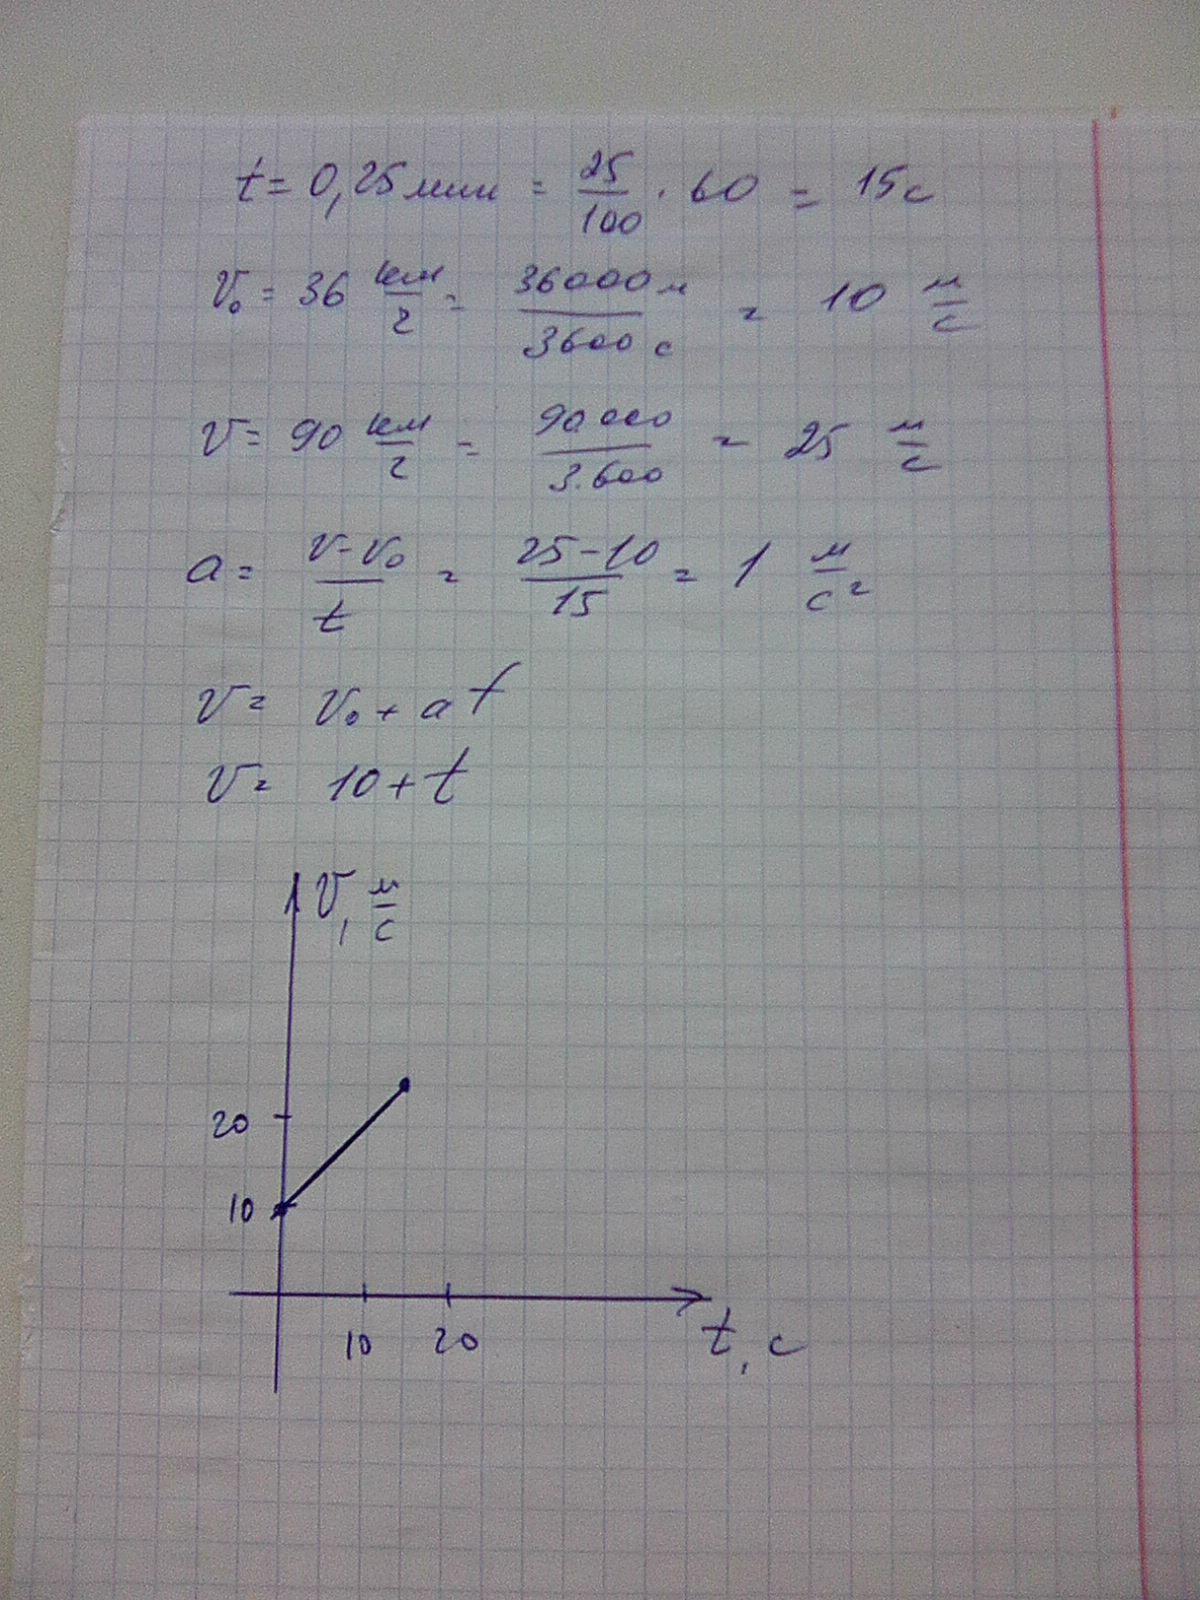 t = 0,25 мин = 25/100 · 60 = 15 с
v₀ = 36 км/г = 36000 м/3600 с = 10 м/с
v = 90 км/г = 90000/3.600 = 25 м/с
a = v-v₀/t = 25-10/15 = 1 м/с²
v = v₀ + at
v = 10 + t
v, м/с
20
10
10 20
t, с